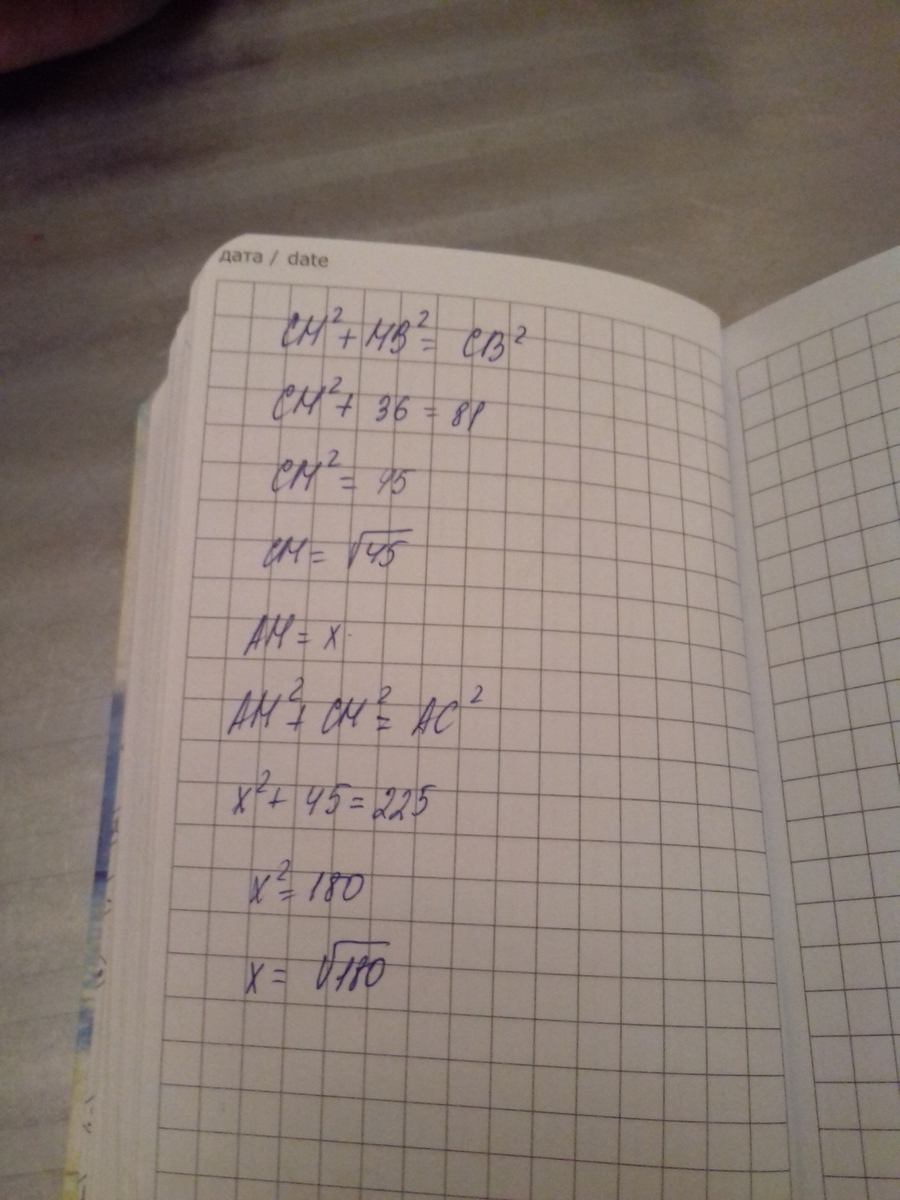 дата / date
CM² + MB² = CB²
CM² + 36 = 81
CM² = 45
CM = √45
AM = x
AM² + CM² = AC²
x² + 45 = 225
x² = 180
x = √180